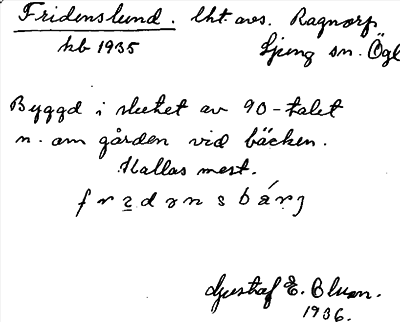 Fridenslund. lht. avs. Ragnorp
kb 1935 Ljung sn. Ögl
Byggd i slutet av 90-talet
n. om gården vid bäcken.
Kallas mest.
Gustaf E. Blum.
1936.